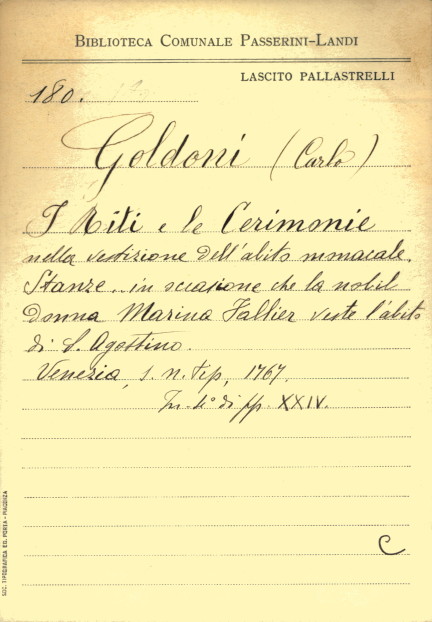 BIBLIOTECA COMUNALE PASSERINI-LANDI
LASCITO PALLASTRELLI
180.
Goldoni (Carlo)
I Riti e le Cerimonie
nella vestizione dell'abito monacale.
Stanze.. in occasione che la nobil
donna Marina Fallier veste l'abito
di S. Agostino.
Venezia, s. n. tip, 1767.
In 4° di pp. XXIV.
C
SOC. TIPOGRAFICA ED. PORTA - PIACENZA